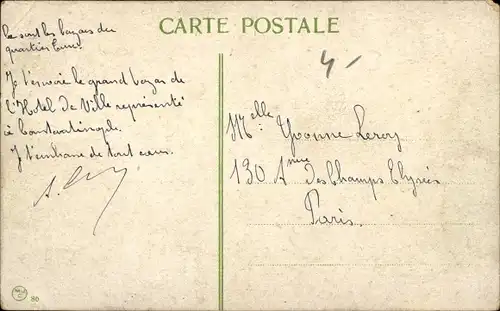 CARTE POSTALE
Ce sont les bazars du
quartier Turc.
Je t'envoie le grand bazar de
l'Hotel de Ville représenté
à Constantinople.
Je t'embrasse de tout cœur.
4 -
Melle: Yvonne Leroy
130 Anue des Champs Elysées
Paris.
86